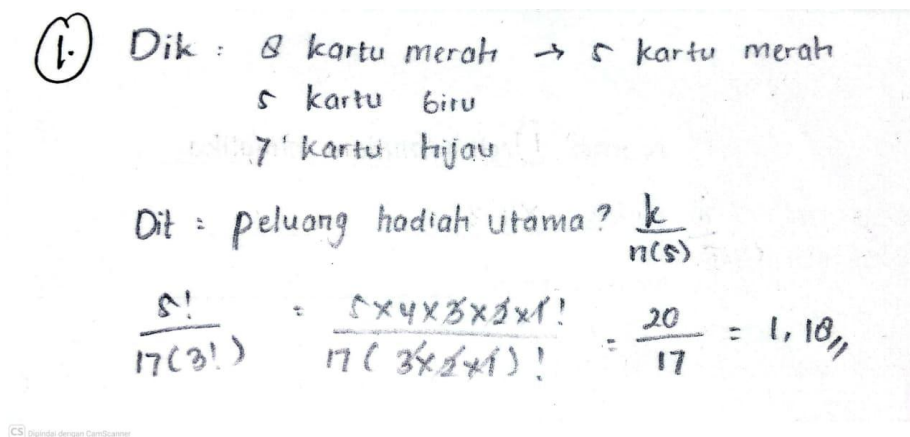 1. Dik : 8 kartu merah → 5 kartu merah
5 kartu biru
7 kartu hijau
Dit : peluang hadiah utama? k/n(s)
5!/17(3!) = 5x4x3x2x1!/17(3x2x1)! = 20/17 = 1,18,,
CS Dipindai dengan CamScanner